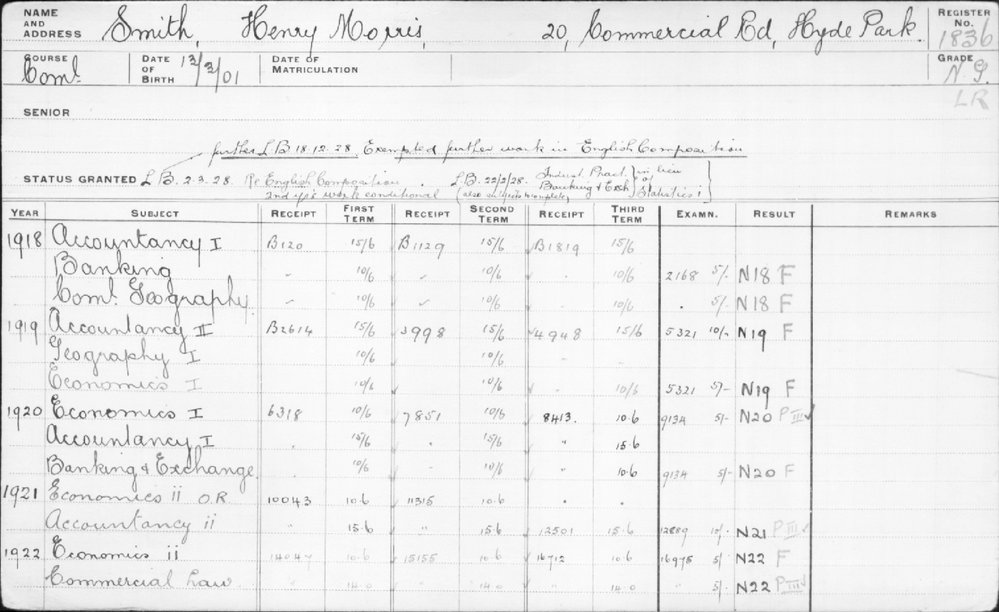 NAME AND ADDRESS Smith, Henry Morris, 20, Commercial Rd, Hyde Park. REGISTER No. 1836
COURSE Coml. DATE OF BIRTH 13/3/01 DATE OF MATRICULATION GRADE N.G.
LR
SENIOR
further L B 18.12.28. Exempted further work in English Composition
STATUS GRANTED L B. 2.3.28. Re English Composition. L.B. 22/2/28. Indust. Pract. Banking & Exch } in lieu of Statistics I
2nd yr's work conditional (also subjects to complete)
YEAR SUBJECT RECEIPT FIRST TERM RECEIPT SECOND TERM RECEIPT THIRD TERM EXAMN. RESULT REMARKS
1918 Accountancy I B120 15/6 B1129 15/6 B1819 15/6
Banking " 10/6 " 10/6 " 10/6 2168 5/- N18 F
Coml. Geography 10/6 10/6 10/6 . 5/- N18 F
1919 Accountancy II B2614 15/6 3998 15/6 4948 15/6 5321 10/- N19 F
Geography I 10/6 10/6
Economics I 10/6 10/6 10/6 5321 5/- N19 F
1920 Economics I 6318 10/6 7851 10/6 8413. 10.6 9134 5/- N20 P III ✓
Accountancy I . 15/6 " 15/6 " 15.6
Banking & Exchange 10/6 10/6 " 10.6 9134 5/- N20 F
1921 Economics ii O.R 10043 10.6 11315 10.6 . .
Accountancy ii " 15.6 " 15.6 12501 15.6 12889 10/- N21 P III ✓
1922 Economics ii 14047 10.6 15155 10.6 16712 10.6 16975 5/- N22 F
Commercial Law " 14.0 " 14.0 " 14.0 " 5/- N22 P III ✓